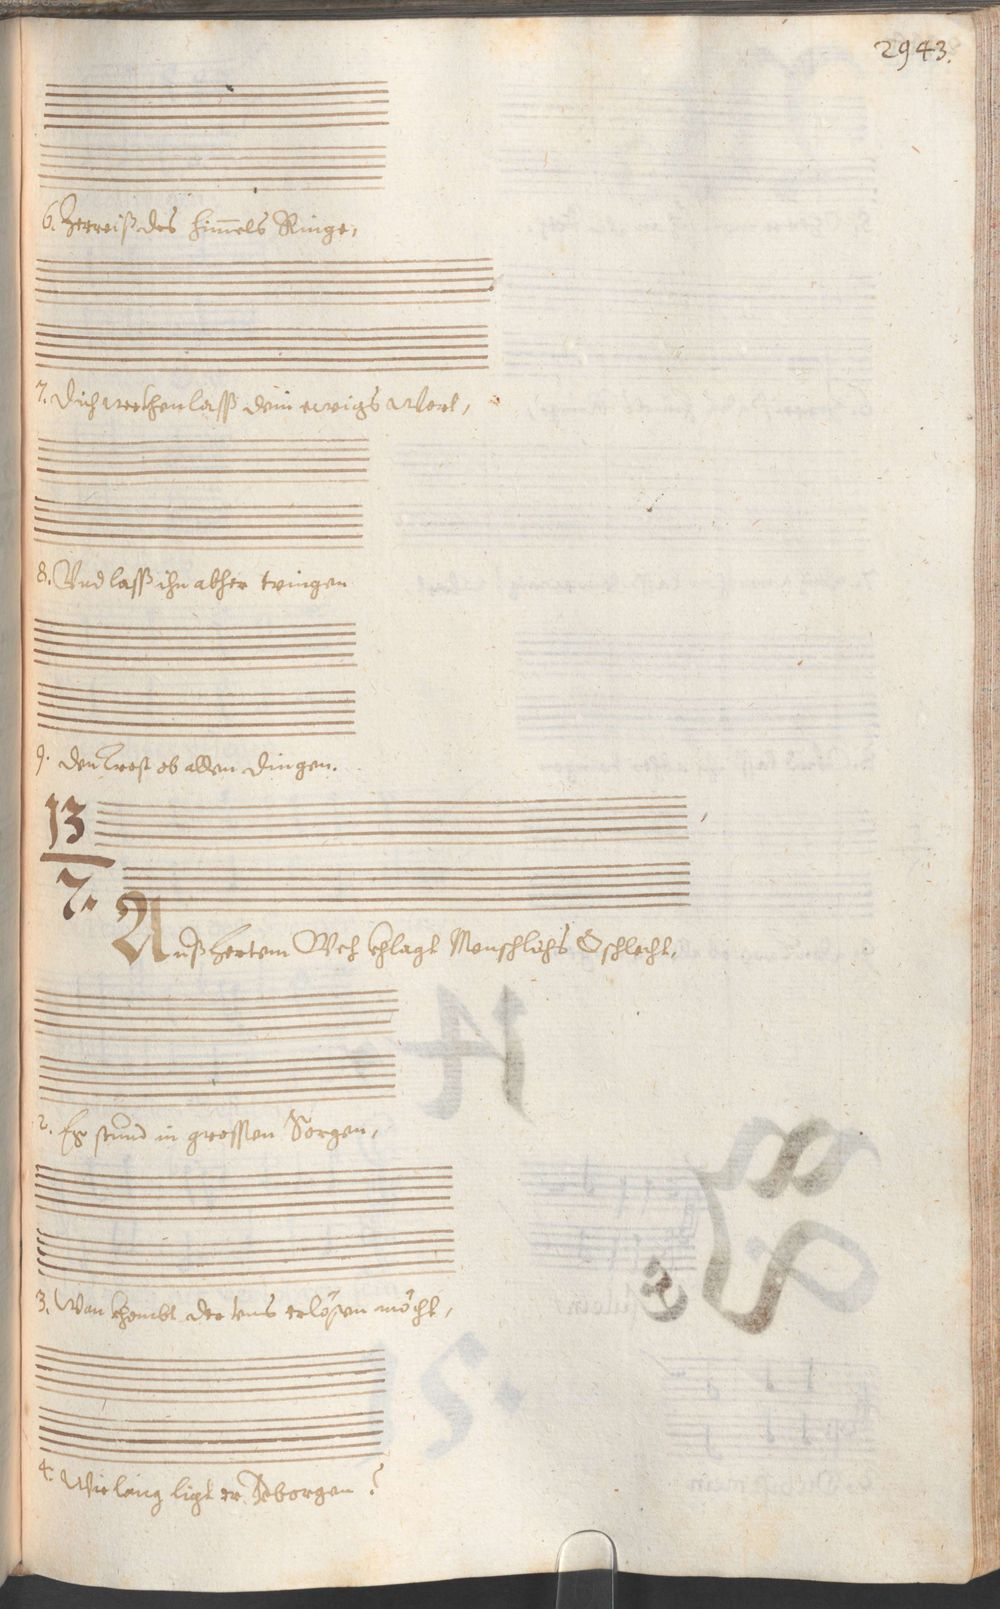 2943.
6. Zerreiß des Him̄els Ringe,
7. Dich wekhen lasß dein ewigs Wort,
8. Vnd lasß ihn abher tringen
9. den Trost ob allen Dingen.
13
7.
Auß hertem Weh khlagt Menschlichs Gschlecht,
2. Es stund in grossen Sorgen,
3. Wan khombt der vns erlösen möcht,
4. Wie lang ligt er Verborgen?